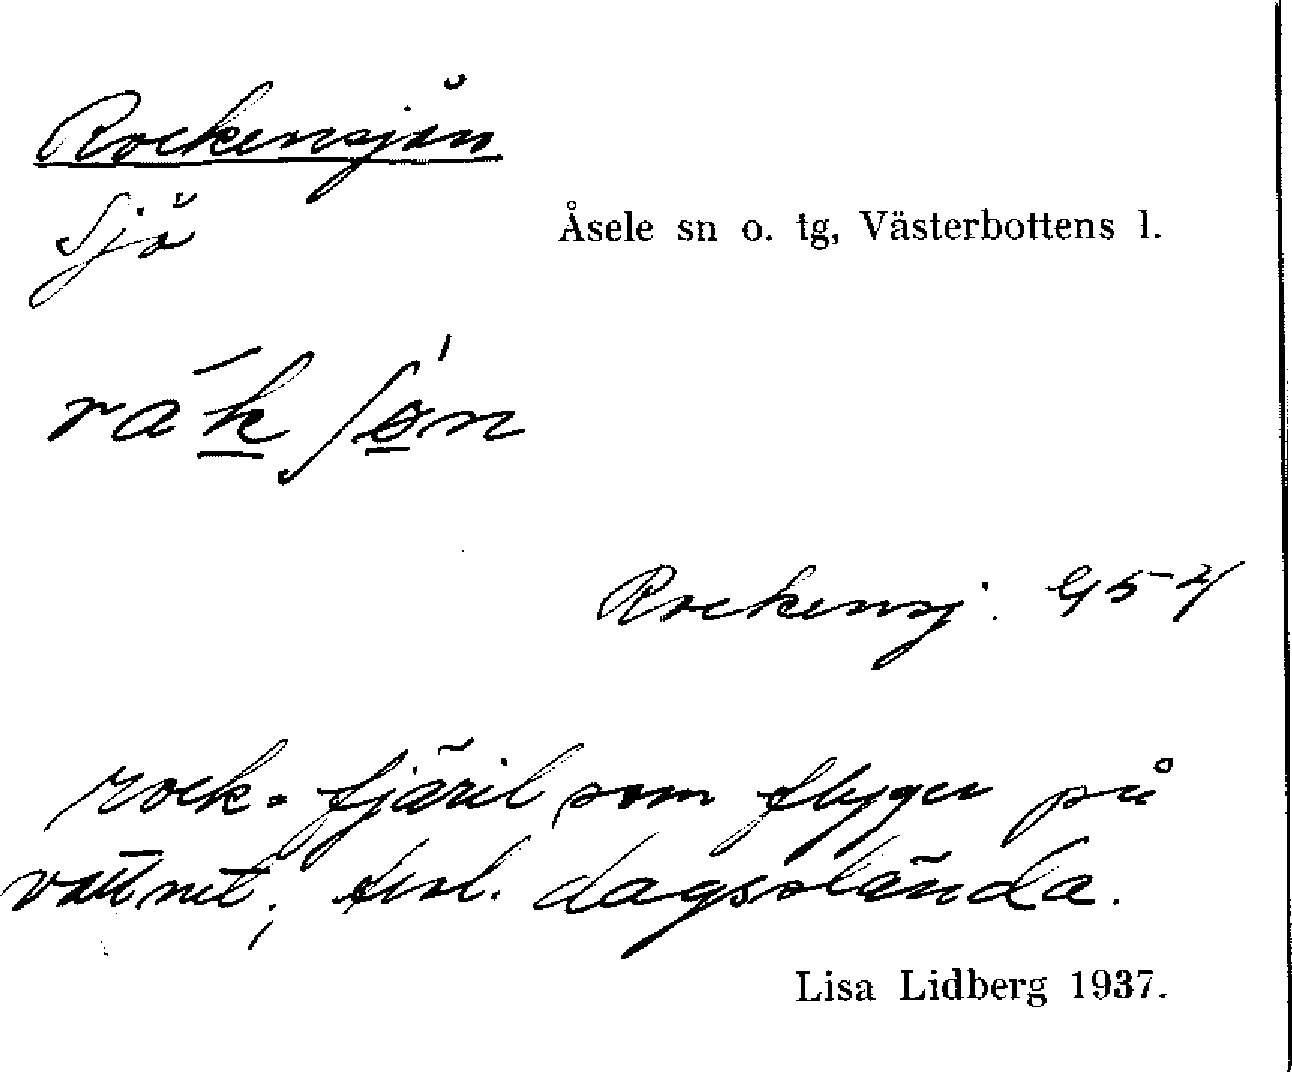 Rockensjön
Sjö
Åsele sn o. tg, Västerbottens l.
rak ʃøn
Rockensj. G 54
rock = fjäril som flyger på
vattnet, trol. dagslända.
Lisa Lidberg 1937.